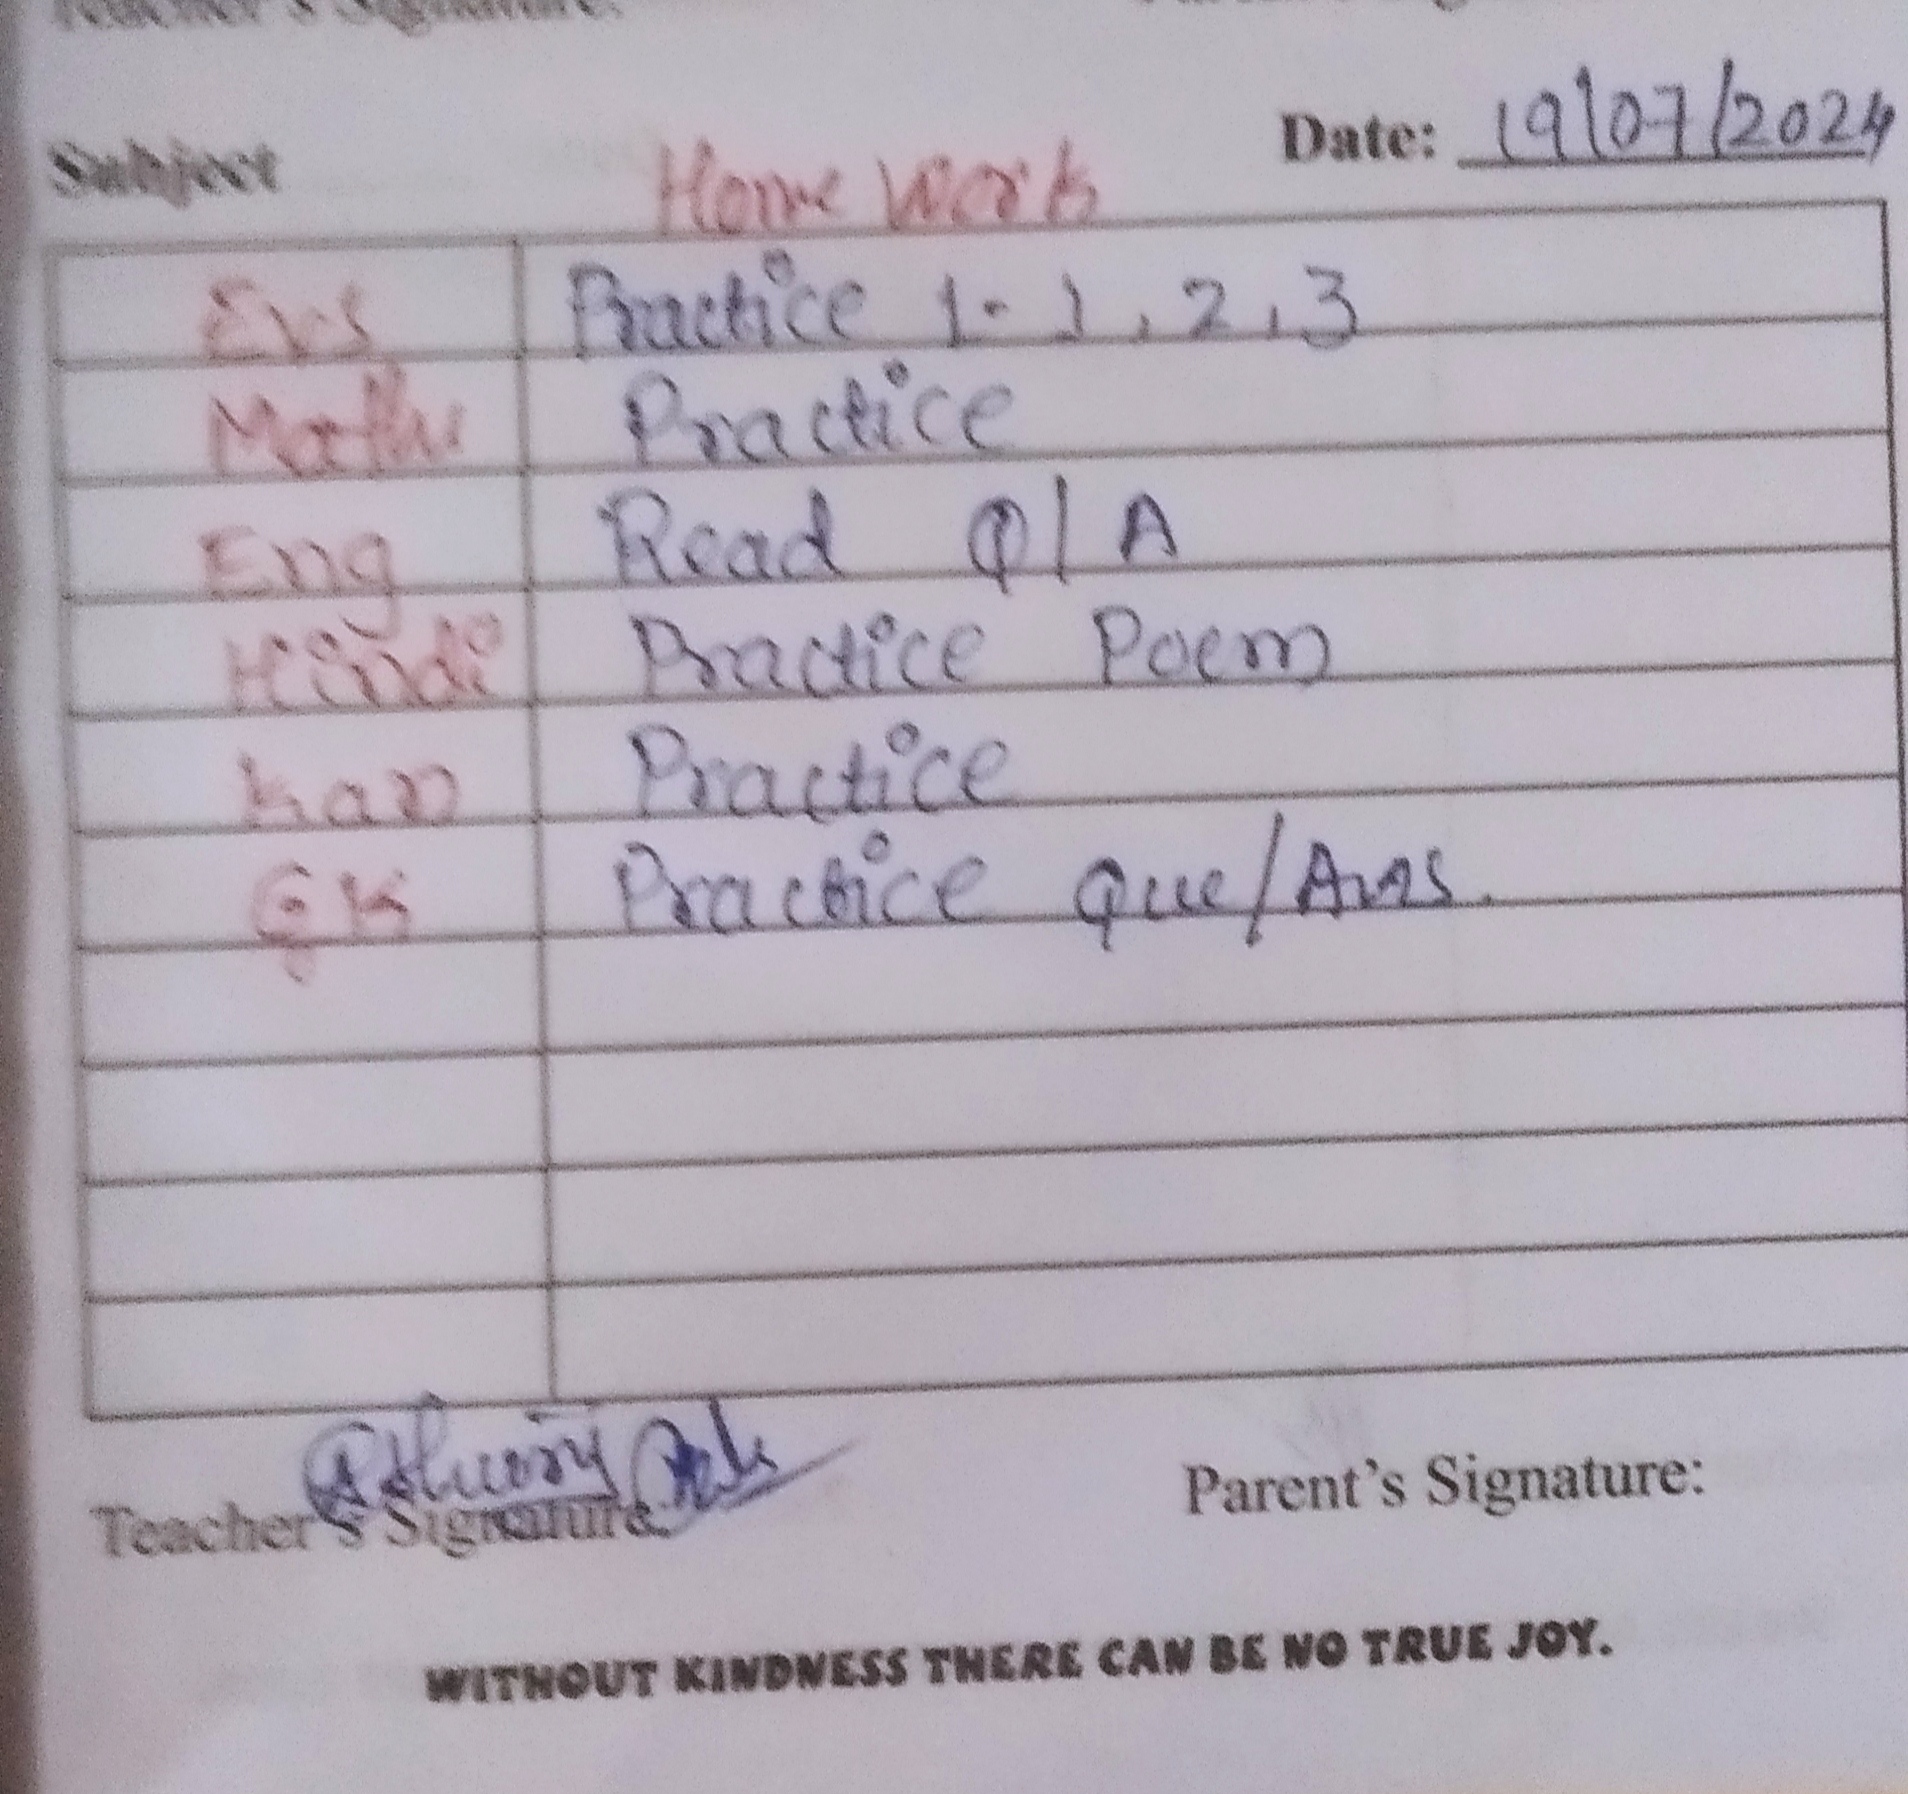 Teacher's Signature:
Date: 19/07/2024
Subject Home Work
Evs Practice 1- 1, 2, 3
Maths Practice
Eng Read Q/A
Hindi Practice Poem
Kan Practice
GK Practice Que/Ans.
Teacher's Signature Parent's Signature:
WITHOUT KINDNESS THERE CAN BE NO TRUE JOY.